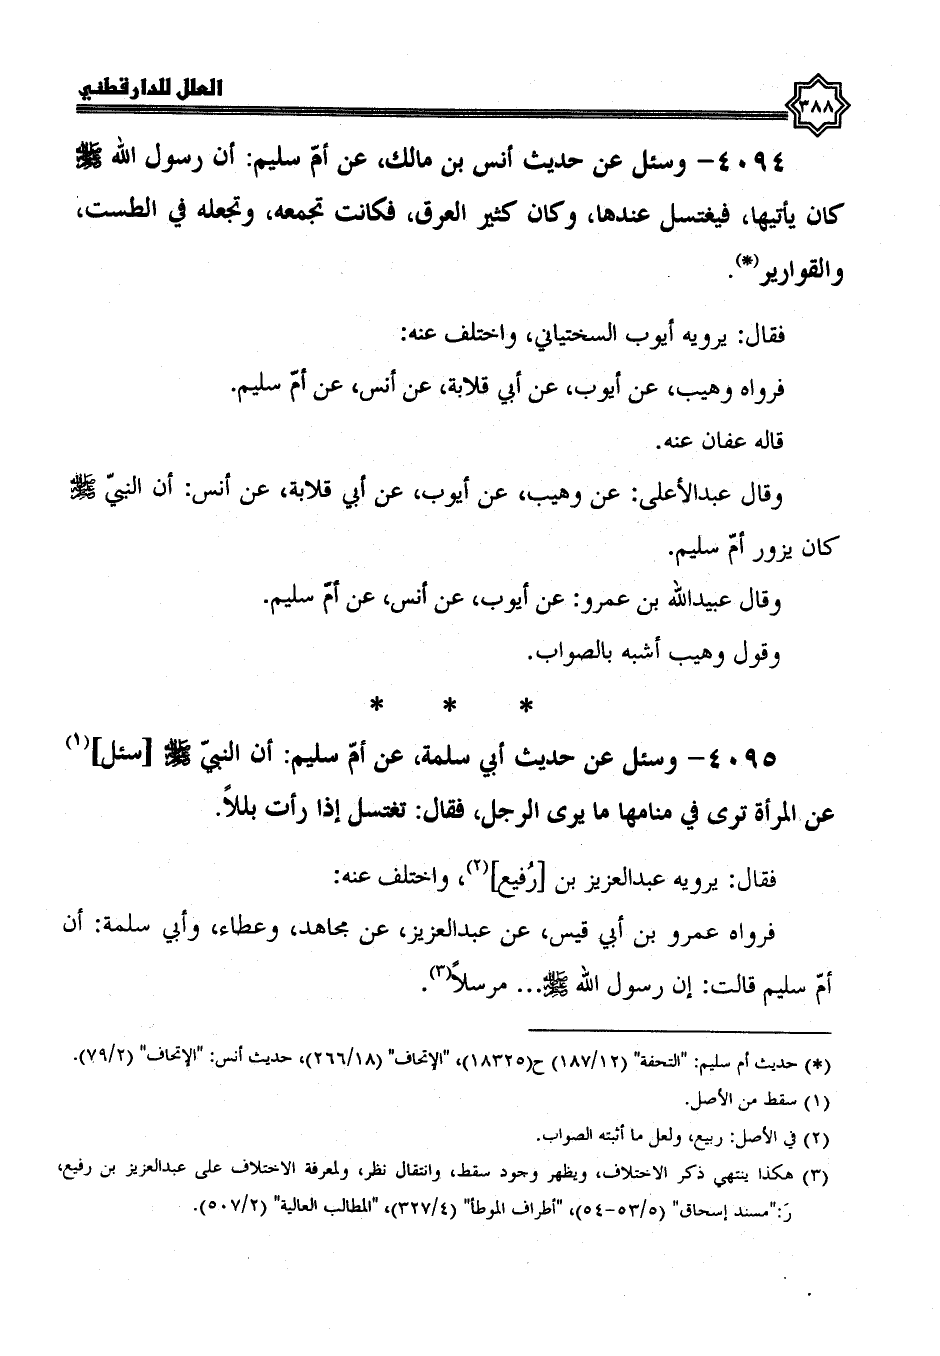 العلل للدارقطني
٣٨٨
٤٠٩٤- وسئل عن حديث أنس بن مالك، عن أمّ سليم: أن رسول الله ﷺ
كان يأتيها، فيغتسل عندها، وكان كثير العرق، فكانت تجمعه، وتجعله في الطست،
والقوارير(*).
فقال: يرويه أيوب السختياني، واختلف عنه:
فرواه وهيب، عن أيوب، عن أبي قلابة، عن أنس، عن أمّ سليم.
قاله عفان عنه.
وقال عبدالأعلى: عن وهيب، عن أيوب، عن أبي قلابة، عن أنس: أن النبيّ ﷺ
كان يزور أمّ سليم.
وقال عبيدالله بن عمرو: عن أيوب، عن أنس، عن أمّ سليم.
وقول وهيب أشبه بالصواب.
* * *
٤٠٩٥- وسئل عن حديث أبي سلمة، عن أمّ سليم: أن النبيّ ﷺ [سئل](١)
عن المرأة ترى في منامها ما يرى الرجل، فقال: تغتسل إذا رأت بللاً.
فقال: يرويه عبدالعزيز بن [رُفيع](٢)، واختلف عنه:
فرواه عمرو بن أبي قيس، عن عبدالعزيز، عن مجاهد، وعطاء، وأبي سلمة: أن
أمّ سليم قالت: إن رسول الله ﷺ... مرسلاً(٣).
(*) حديث أم سليم: "التحفة" (١٨٧/١٢) ح(١٨٣٢٥)، "الإتحاف" (٢٦٦/١٨)، حديث أنس: "الإتحاف" (٧٩/٢).
(١) سقط من الأصل.
(٢) في الأصل: ربيع، ولعل ما أثبته الصواب.
(٣) هكذا ينتهي ذكر الاختلاف، ويظهر وجود سقط، وانتقال نظر، ولمعرفة الاختلاف على عبدالعزيز بن رفيع،
رَ: "مسند إسحاق" (٥٣/٥-٥٤)، "أطراف الموطأ" (٣٢٧/٤)، "المطالب العالية" (٥٠٧/٢).